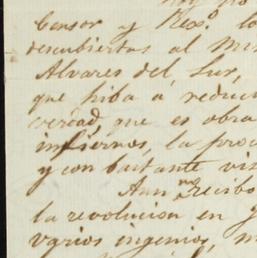 Censor y Rexº l
descubiertas al Min
Alvares del Sur,
que hiba á reduci
verdad que es obra
infiernos, la pro
y con bastante vis
Aun no recibo
la revolucion en
varios ingenios, m